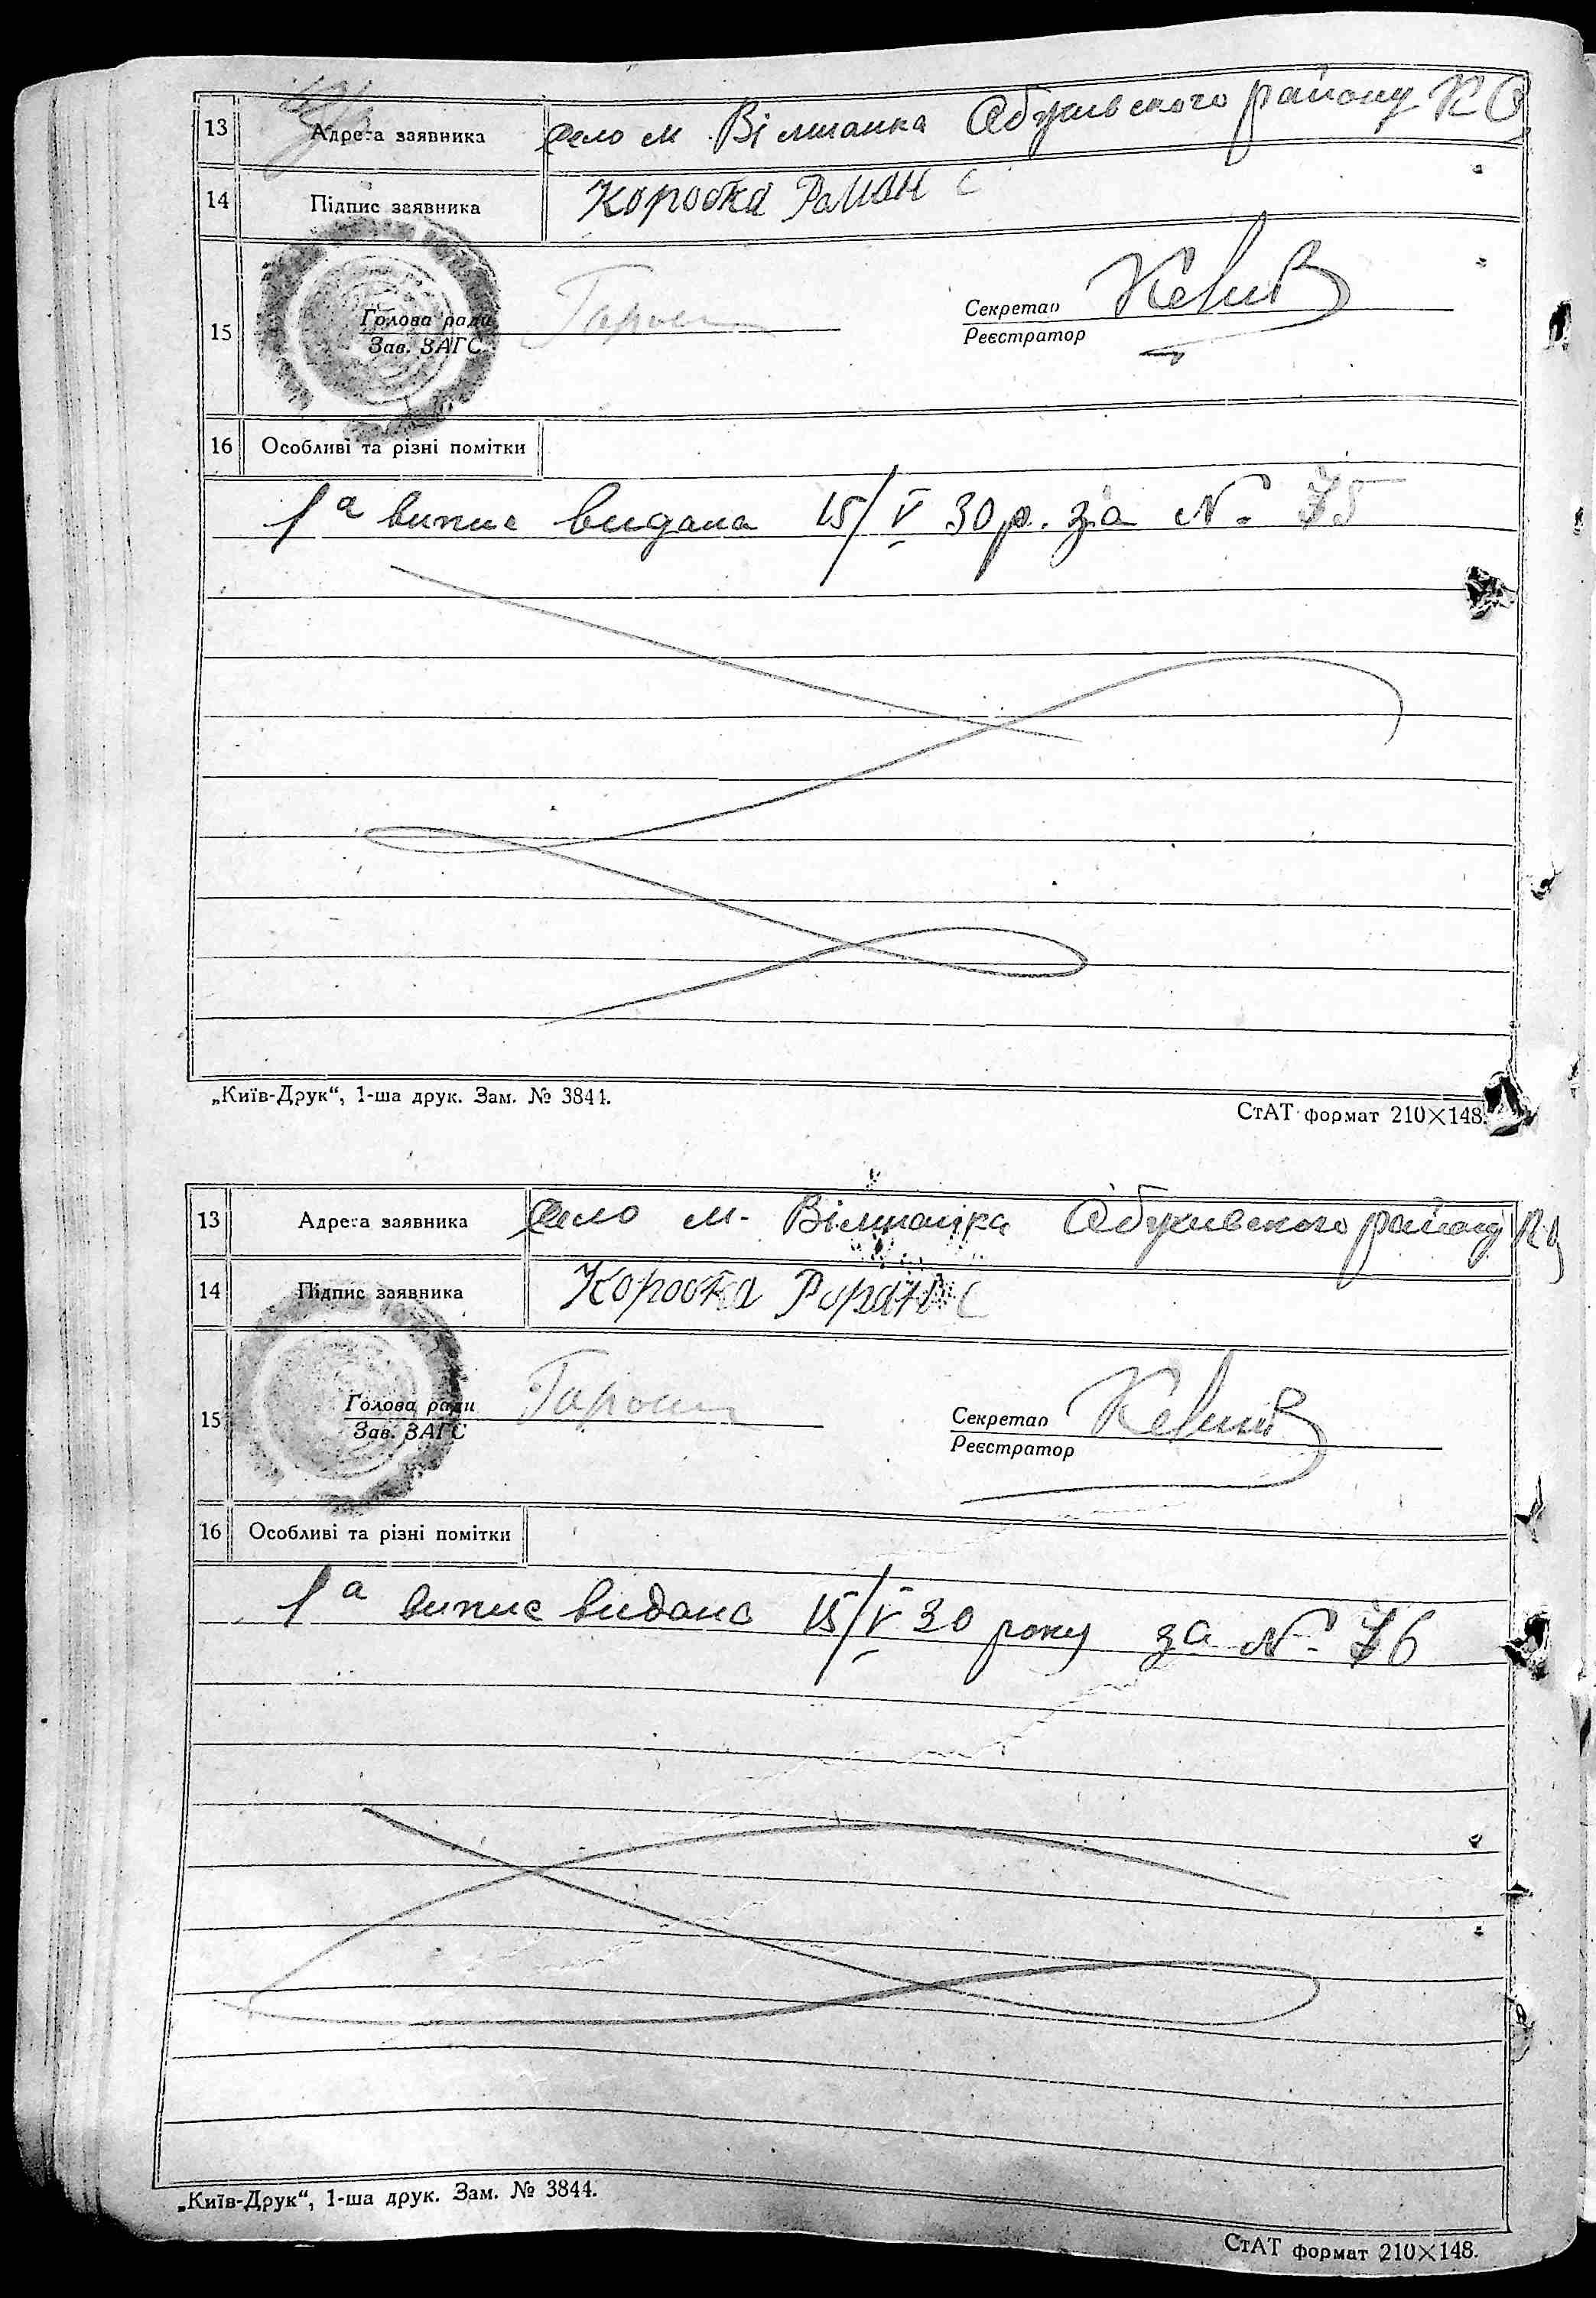 13 Адреса заявника село м. Вільшанка Обухивського району К О
14 Підпис заявника Коростка Роман С
15 Голова ради
Зав. ЗАГС
Секретар
Реєстратор
16 Особливі та різні помітки
1а випис видана 15/V 30 р. за № 75
„Київ-Друк“, 1-ша друк. Зам. № 3844.
СтАТ формат 210×148.
13 Адреса заявника село м. Вільшанка Обухивського району К О
14 Підпис заявника Коростка Роман С
15 Голова ради
Зав. ЗАГС
Секретар
Реєстратор
16 Особливі та різні помітки
1а випис видана 15/V 30 року за № 76
„Київ-Друк“, 1-ша друк. Зам. № 3844.
СтАТ формат 210×148.